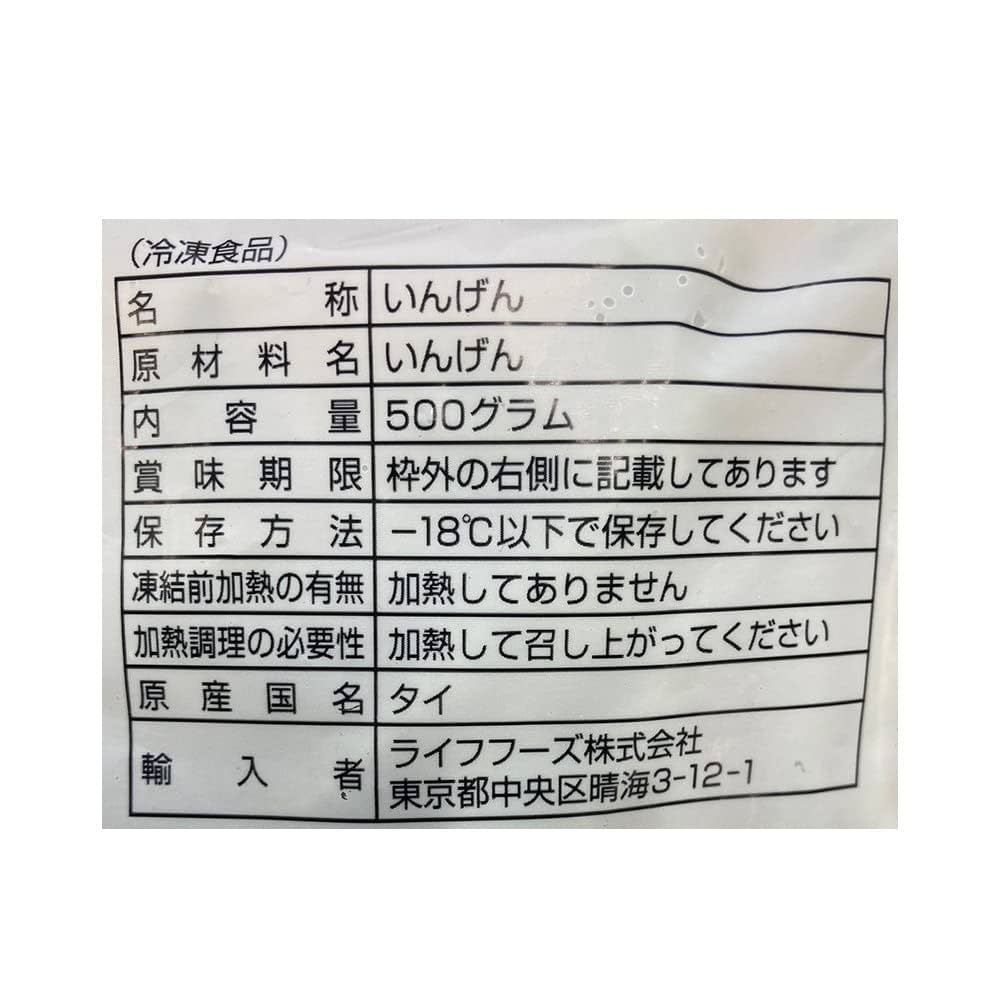 (冷凍食品)
名称 いんげん
原材料名 いんげん
内容量 500グラム
賞味期限 枠外の右側に記載してあります
保存方法 -18℃以下で保存してください
凍結前加熱の有無 加熱してありません
加熱調理の必要性 加熱して召し上がってください
原産国名 タイ
輸入者 ライフフーズ株式会社
東京都中央区晴海3-12-1